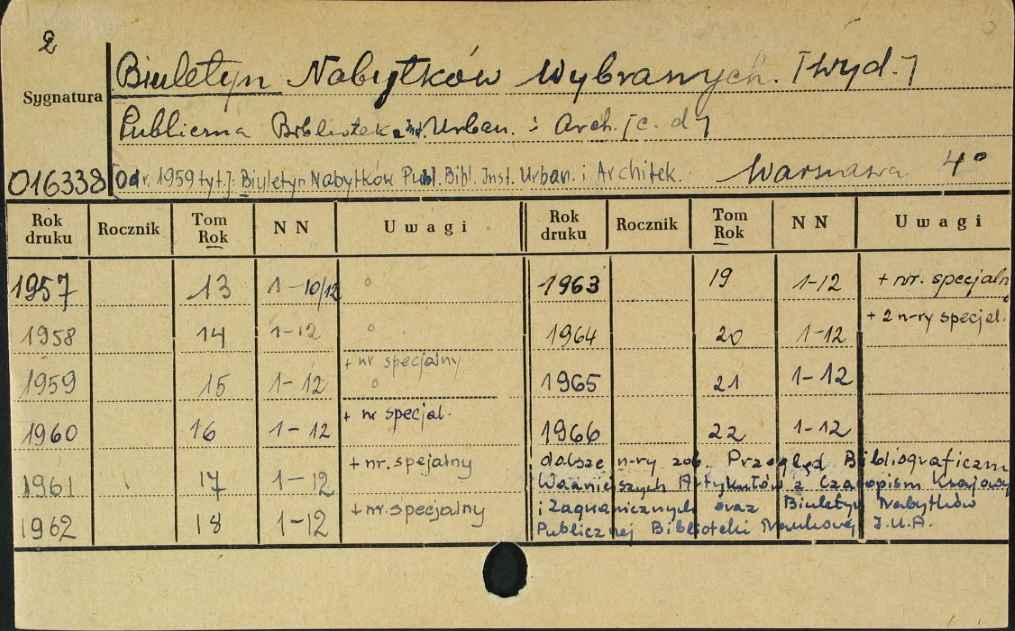 2
Biuletyn Nabytków Wybranych. [wyd.]
Sygnatura
Publiczna Biblioteka Inst. Urban. i Arch. [c. d]
016338 [Od r. 1959 tyt.]: Biuletyn Nabytków Publ. Bibl. Inst. Urban. i Architek. Warszawa 4°
Rok druku Rocznik Tom Rok N N Uwagi Rok druku Rocznik Tom Rok N N Uwagi
1957 13 1-10/12 1963 19 1-12 + nr. specjaln
1958 14 1-12 1964 20 1-12 + 2 n-ry specjal.
1959 15 1-12 + nr specjalny 1965 21 1-12
1960 16 1-12 + nr specjal. 1966 22 1-12
1961 17 1-12 + nr. spejalny
1962 18 1-12 + nr. specjalny
dalsze n-ry zob. Przegląd Bibliograficzn
Ważniejszych Artykułów z Czasopism Krajowy
i Zagranicznych oraz Biuletyn Nabytków
Publicznej Biblioteki Naukowej I.U.A.